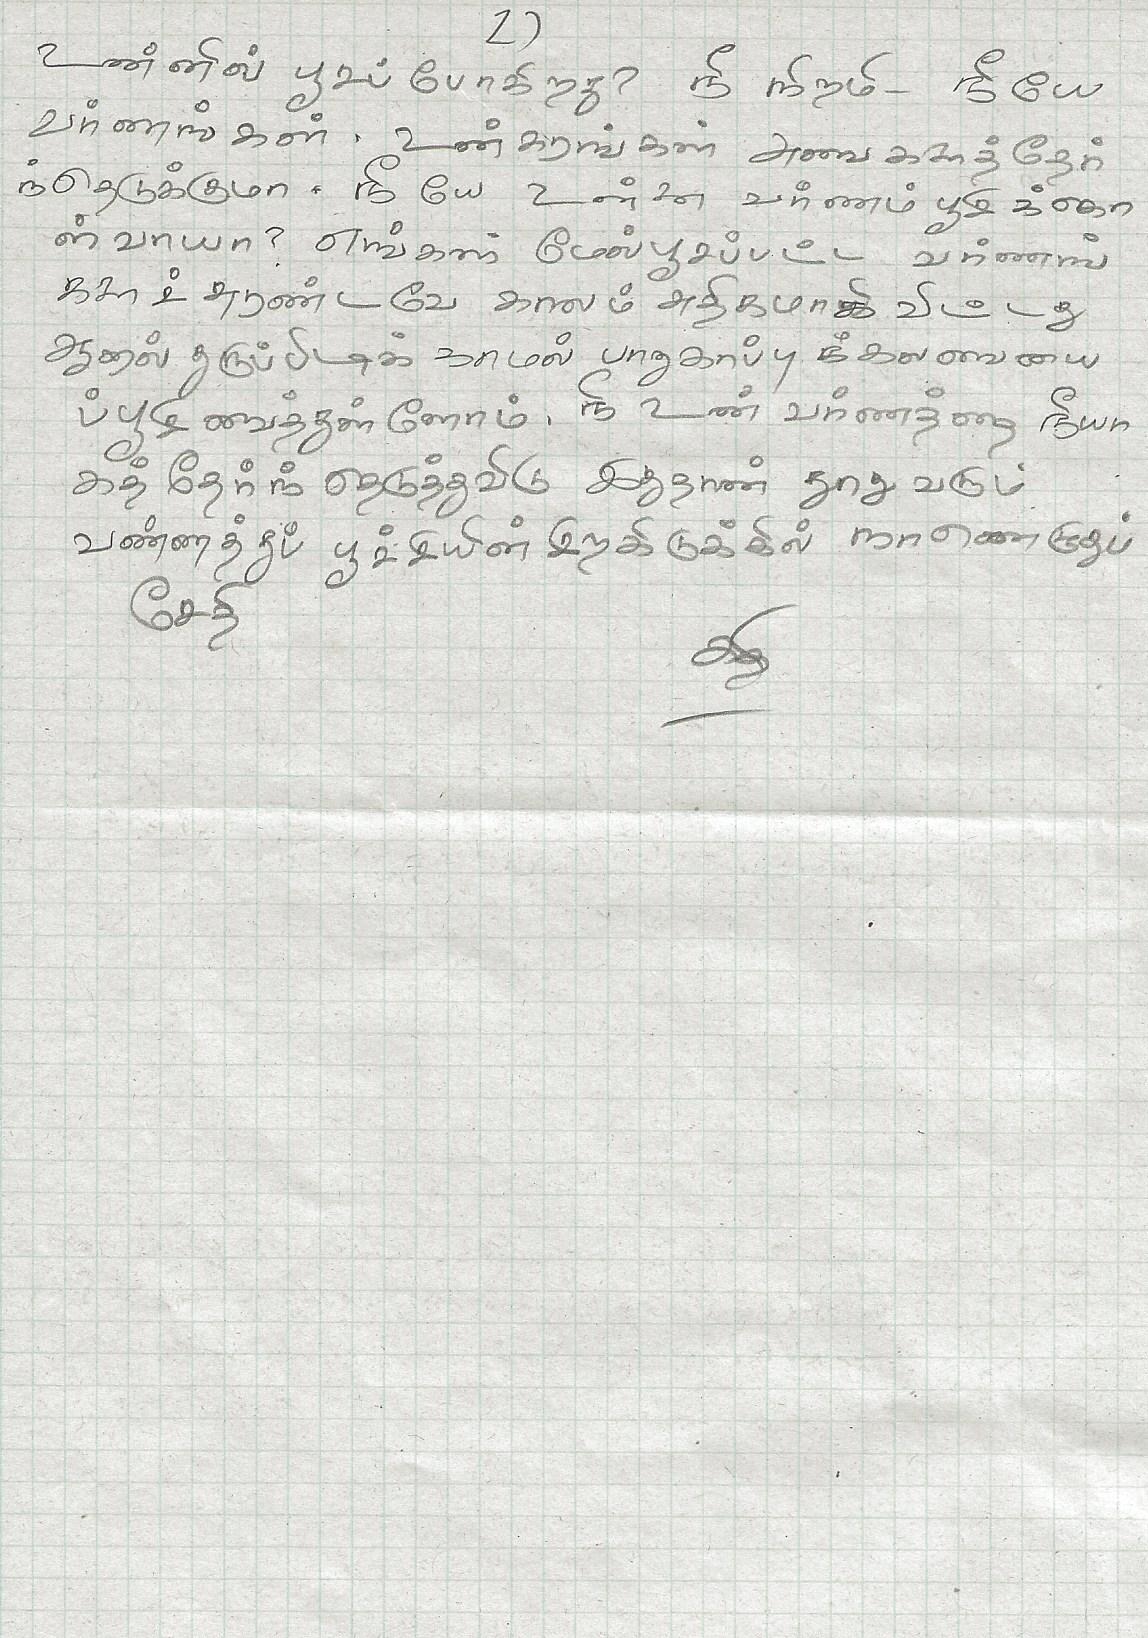 2)
உன்னில் பூசப் போகிறது? நீ நிறம் - நீயே
வர்ணங்கள். உன்கரங்கள் அவைகளைத்தேர்
ந்தெடுக்குமா. நீ யே உன்னை வர்ணம் பூசிக்கொ
ள்வாயா? எங்கள் மேல்பூசப்பட்ட வர்ணங்
களைச் சுரண்டவே காலம் அதிகமாகி விட்டது
ஆனால் துருப்பிடிக் காமல் பாதுகாப்பு க்கலவையை
ப்பூசி வைத்துள்ளோம். நீ உன் வர்ணத்தை நீயா
கத் தேர்ந் தெடுத்துவிடு இதுதான் தூது வரும்
வண்ணத்துப் பூச்சியின் சிறகிடுக்கில்
சேதி